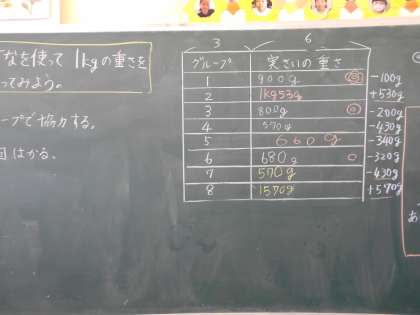 なを使って 1kgの重さを
ってみよう。
ープで協力する。
回はかる。
3 6
グループ 実さいの重さ
1 900g ◎ -100g
2 1kg53g +530g
3 800g ○ -200g
4 570g -430g
5 660g -340g
6 680g ○ -320g
7 570g -430g
8 1570g +570g
あ